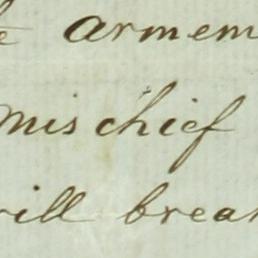 armem
mischief
will brea